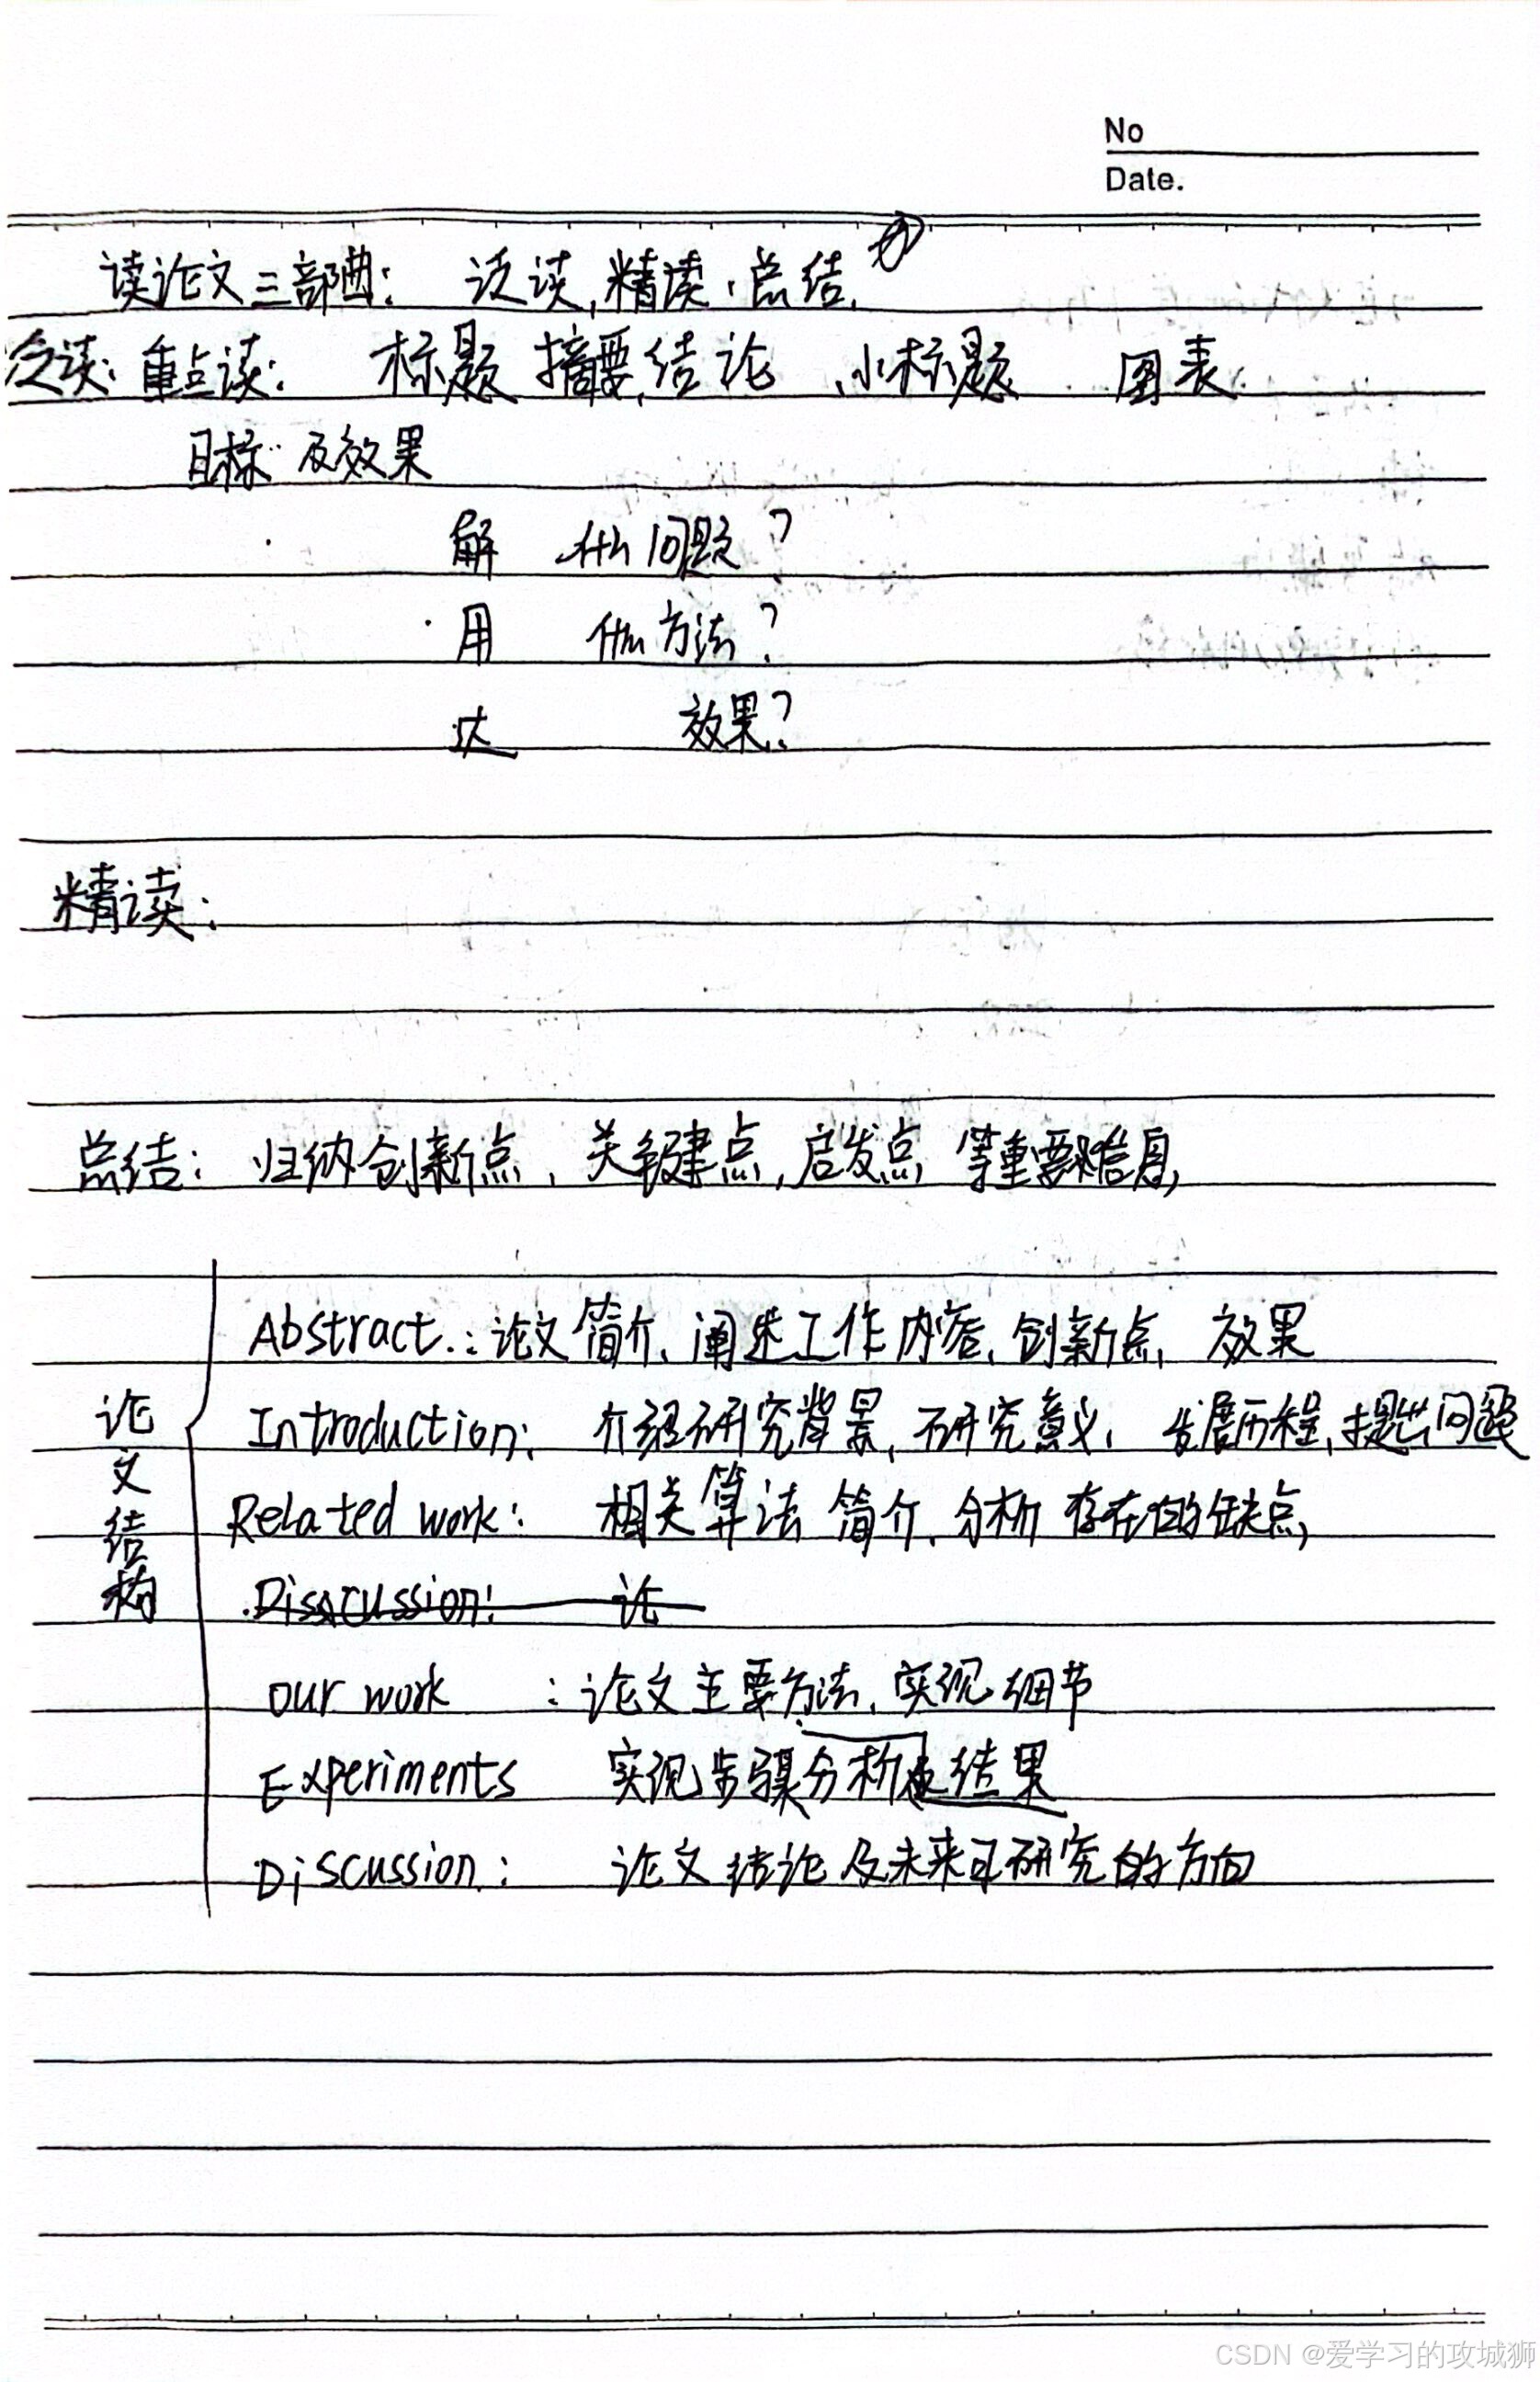 No
Date.
读论文三部曲: 泛读,精读、总结.
泛读: 重点读: 标题 摘要,结论 、小标题 图表.
目标 及效果
解 什么问题?
用 什么方法?
达 效果?
精读:
总结: 归纳创新点、关键点,启发点 等重要信息,
论文结构
Abstract.: 论文简介、阐述工作内容、创新点、效果
Introduction: 介绍研究背景、研究意义、发展历程、提出问题
Related work: 相关算法 简介、分析 存在的缺点,
Disscussion: 论
our work : 论文主要方法、实现细节
Experiments 实现步骤分析 结果
Discussion: 论文结论及未来可研究的方向
CSDN @爱学习的攻城狮